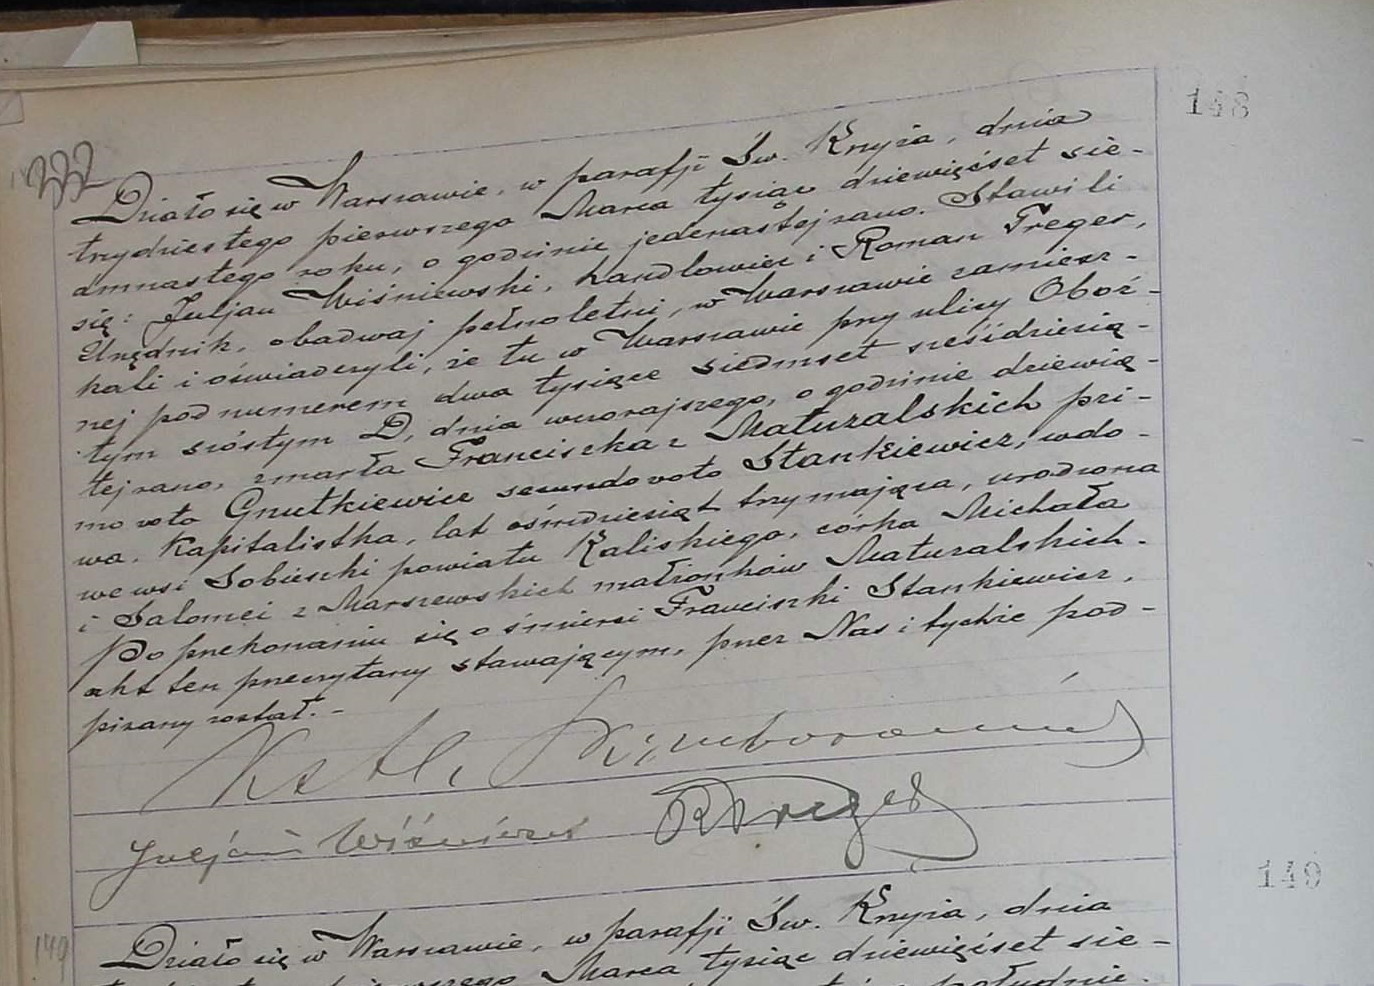 148
Działo się w Warszawie, w parafji Św. Krzyża, dnia
trzydziestego pierwszego Marca tysiąc dziewięćset sie-
dmnastego roku, o godzinie jedenastej rano. Stawili
się: Juljan Wiśniewski, handlowiec i Roman Treger,
Urzędnik, obadwaj pełnoletni, w Warszawie zamiesz-
kali i oświadczyli, że tu w Warszawie przy ulicy Oboź-
nej pod numerem dwa tysiące siedmset sześćdziesią-
tym szóstym D, dnia wczorajszego, o godzinie dziewią-
tej rano, zmarła Franciszka z Maturalskich pri-
mo voto Gnutkiewicz secundo voto Stankiewicz, wdo-
wa, Kapitalistka, lat ośmdziesiąt trzy mająca, urodzona
we wsi Sobieseki powiatu Kaliskiego, córka Michała
i Salomei z Marszewskich małżonków Maturalskich.
Po przekonaniu się o śmierci Franciszki Stankiewicz,
akt ten przeczytany stawającym, przez Nas i tychże pod-
pisany został.-
Juljan Wiśniewski RTreger
149
149
Działo się w Warszawie, w parafji Św. Krzyża, dnia
Marca tysiąc dziewięćset sie-
południe.